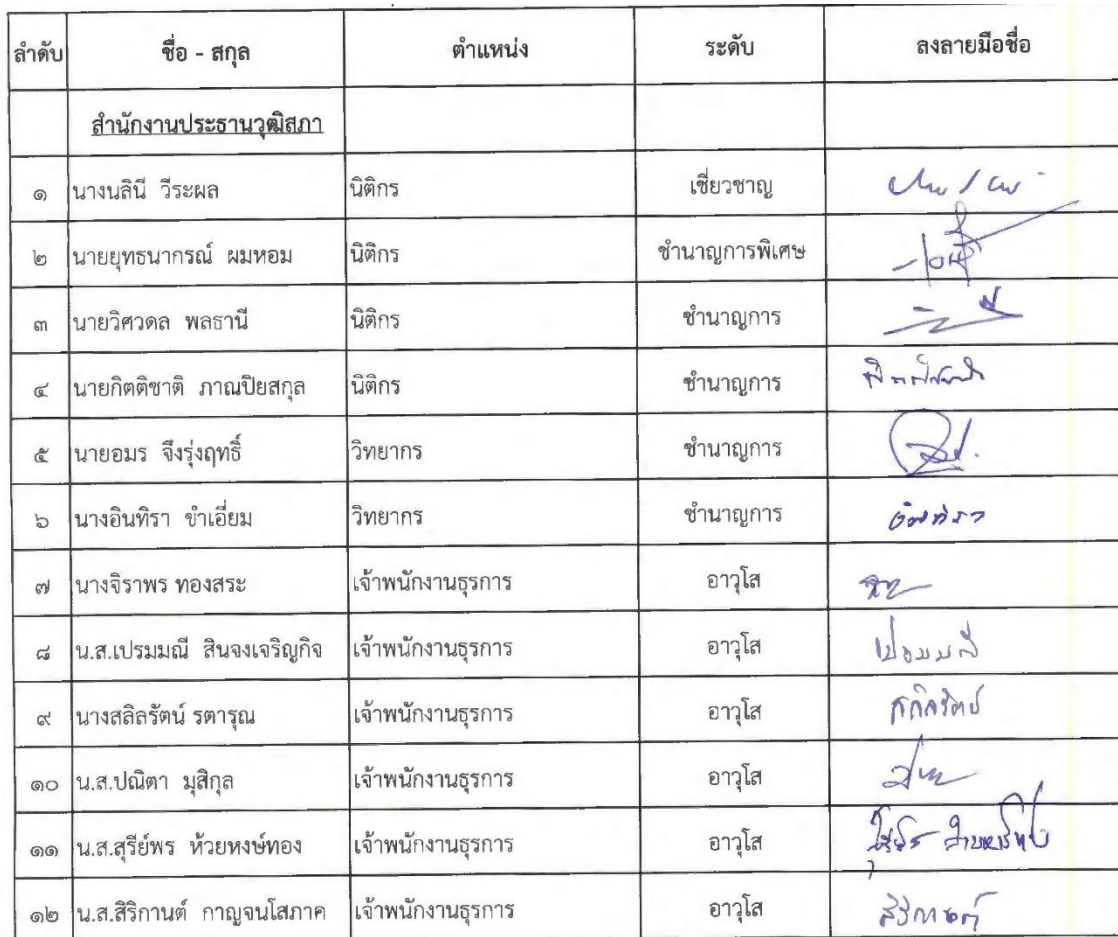 ลำดับ ชื่อ - สกุล ตำแหน่ง ระดับ ลงลายมือชื่อ
สำนักงานประธานวุฒิสภา
๑ นางนลินี วีระผล นิติกร เชี่ยวชาญ
๒ นายยุทธนากรณ์ ผมหอม นิติกร ชำนาญการพิเศษ
๓ นายวิศวดล พลธานี นิติกร ชำนาญการ
๔ นายกิตติชาติ ภาณปิยสกุล นิติกร ชำนาญการ
๕ นายอมร จึงรุ่งฤทธิ์ วิทยากร ชำนาญการ
๖ นางอินทิรา ขำเอี่ยม วิทยากร ชำนาญการ อินทิรา
๗ นางจิราพร ทองสระ เจ้าพนักงานธุรการ อาวุโส
๘ น.ส.เปรมมณี สินจงเจริญกิจ เจ้าพนักงานธุรการ อาวุโส เปรมมณี
๙ นางสลิลรัตน์ รตารุณ เจ้าพนักงานธุรการ อาวุโส สลิลรัตน์
๑๐ น.ส.ปณิตา มุสิกุล เจ้าพนักงานธุรการ อาวุโส
๑๑ น.ส.สุรีย์พร ห้วยหงษ์ทอง เจ้าพนักงานธุรการ อาวุโส
๑๒ น.ส.สิริกานต์ กาญจนโสภาค เจ้าพนักงานธุรการ อาวุโส สิริกานต์